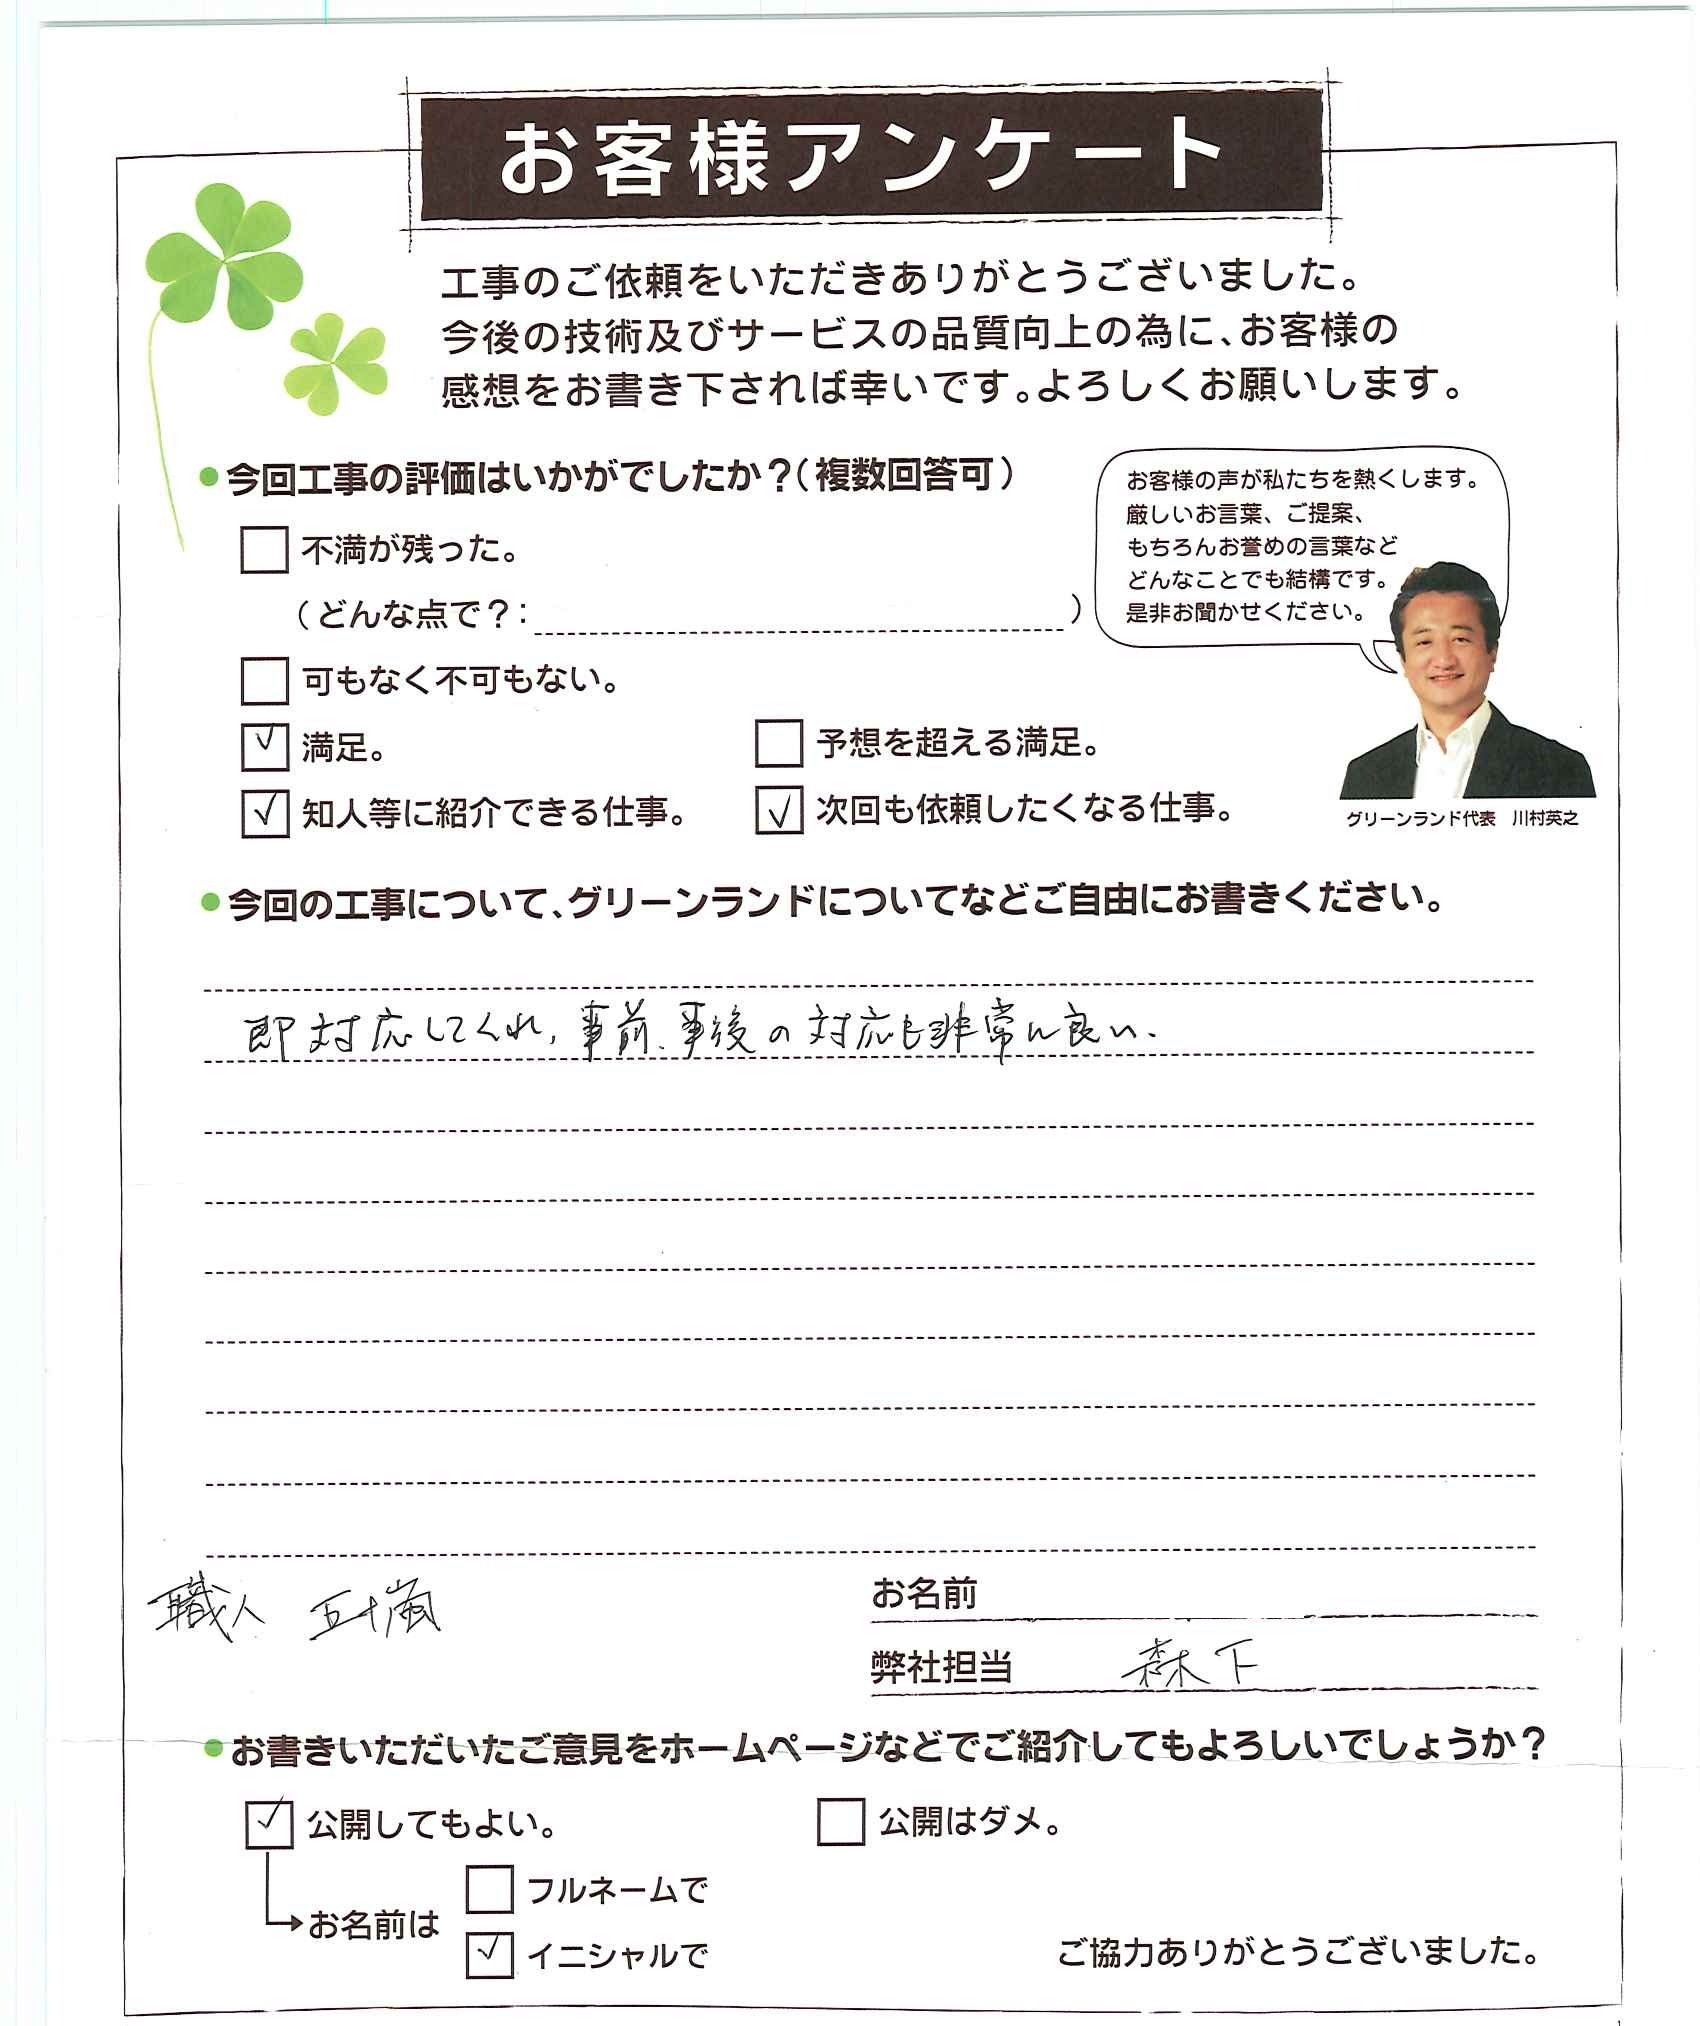 お客様アンケート
工事のご依頼をいただきありがとうございました。
今後の技術及びサービスの品質向上の為に、お客様の
感想をお書き下されば幸いです。よろしくお願いします。
●今回工事の評価はいかがでしたか？（複数回答可）
不満が残った。
（どんな点で？：　）
可もなく不可もない。
✓ 満足。
予想を超える満足。
✓ 知人等に紹介できる仕事。
✓ 次回も依頼したくなる仕事。
お客様の声が私たちを熱くします。
厳しいお言葉、ご提案、
もちろんお誉めの言葉など
どんなことでも結構です。
是非お聞かせください。
グリーンランド代表　川村英之
●今回の工事について、グリーンランドについてなどご自由にお書きください。
即対応してくれ、事前、事後の対応も非常に良い。
職人　五十嵐
お名前
弊社担当　森下
●お書きいただいたご意見をホームページなどでご紹介してもよろしいでしょうか？
✓ 公開してもよい。
公開はダメ。
お名前は
フルネームで
✓ イニシャルで
ご協力ありがとうございました。